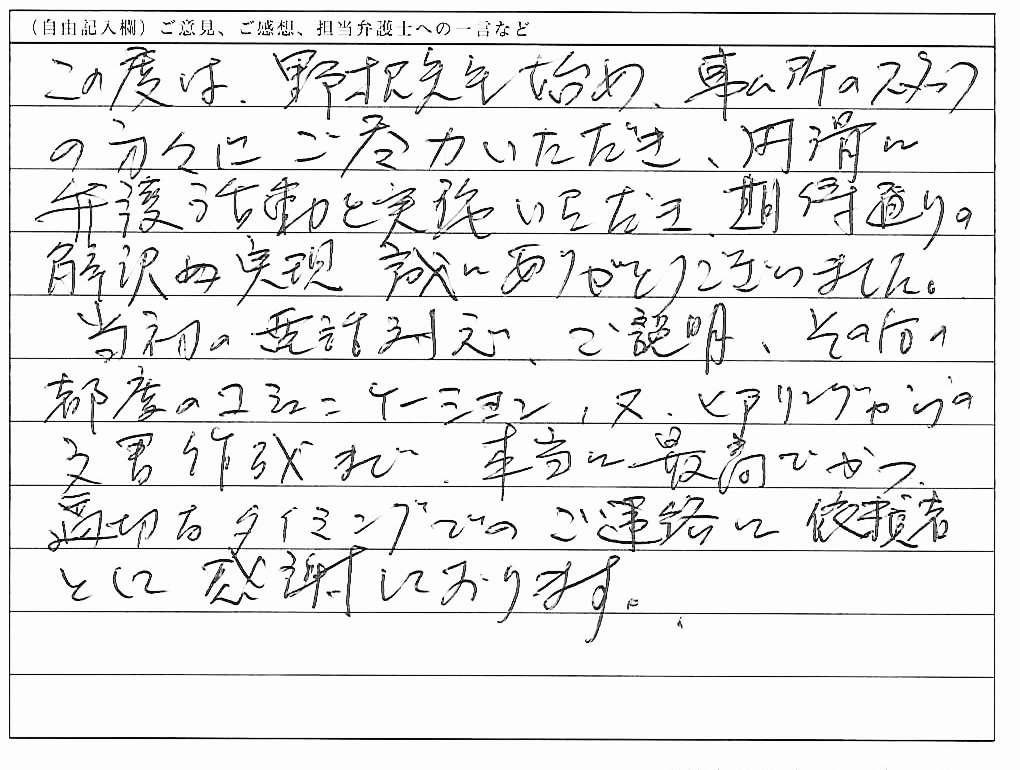 （自由記入欄）ご意見、ご感想、担当弁護士への一言など
この度は、野根先生を始め、事ム所のスタッフ
の方々にご尽力いただき、円滑に
弁護活動を実施いただき、期待通りの
解決の実現 誠にありがとうございました。
当初の電話対応、ご説明、その他の
都度のコミュニケーション、又、ヒアリングからの
文書作成まで、本当に最高でかつ、
適切なタイミングでのご連絡に依頼者
として感謝しております。